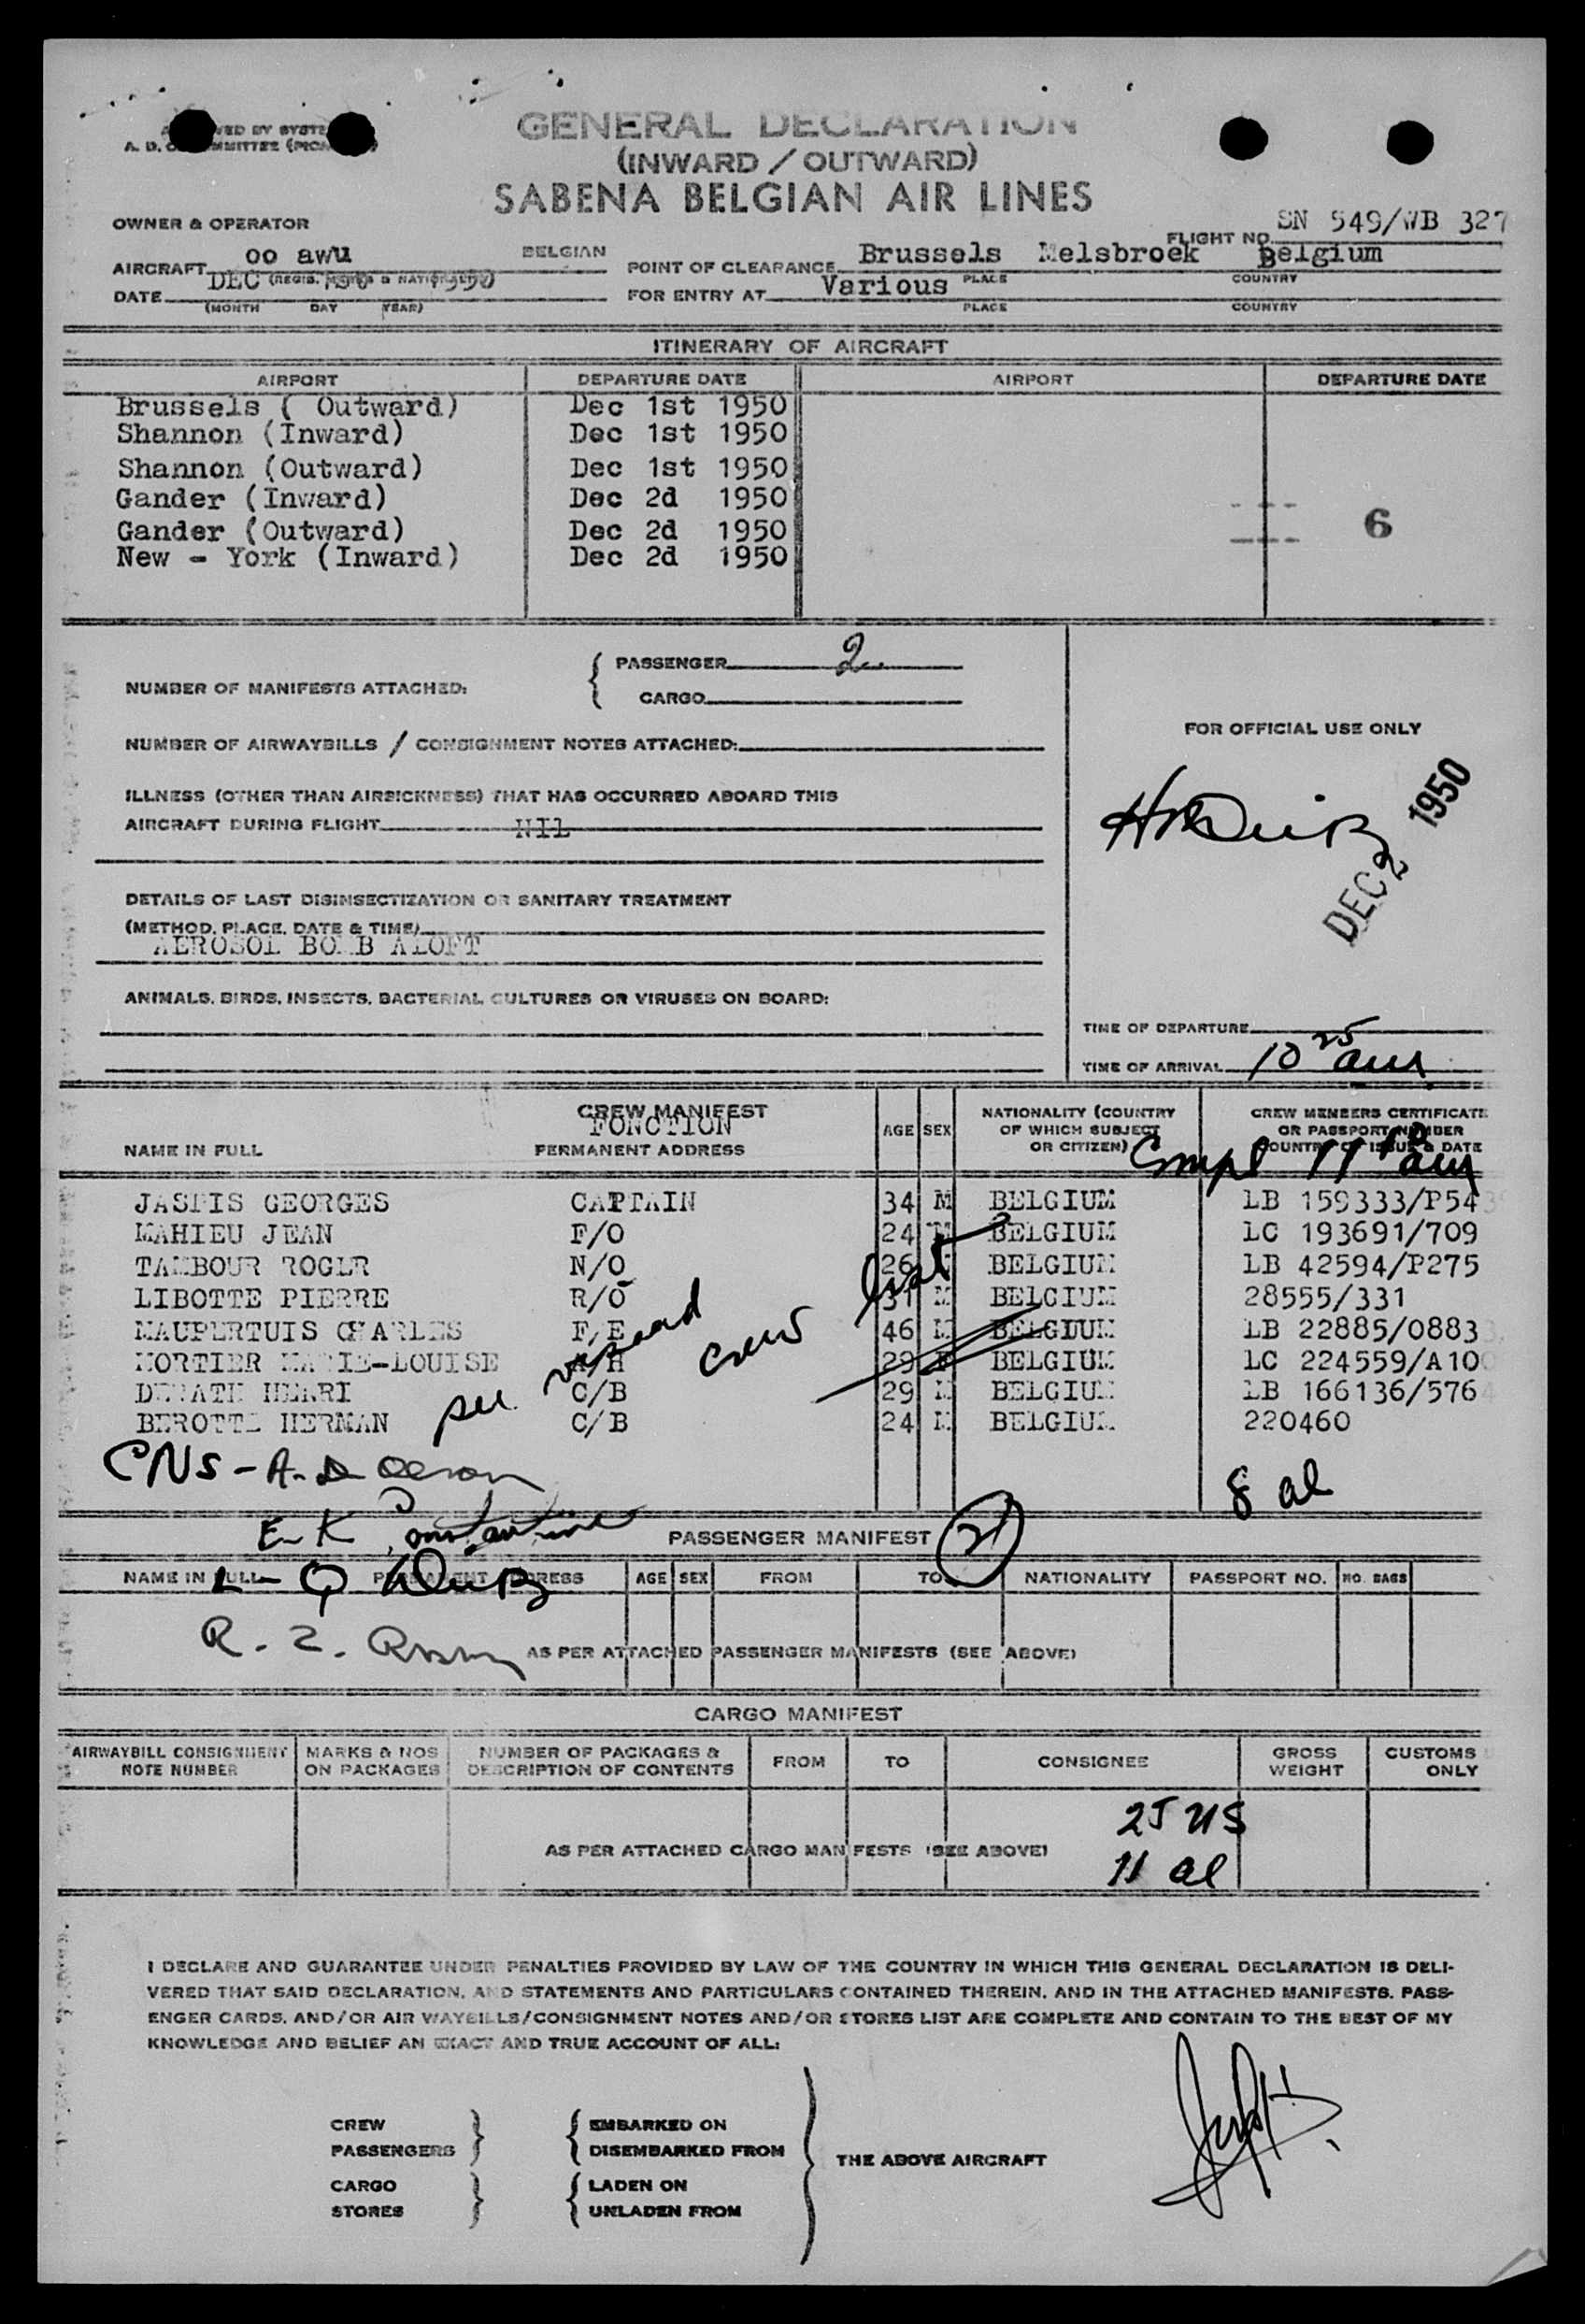 GENERAL DECLARATION
(INWARD / OUTWARD)
SABENA BELGIAN AIR LINES
OWNER & OPERATOR
FLIGHT NO. SN 549/WB 327
AIRCRAFT oo awu BELGIAN
POINT OF CLEARANCE Brussels Melsbroek Belgium
PLACE COUNTRY
DATE DEC 1950
(MONTH DAY YEAR)
FOR ENTRY AT Various
PLACE COUNTRY
ITINERARY OF AIRCRAFT
AIRPORT DEPARTURE DATE AIRPORT DEPARTURE DATE
Brussels ( Outward) Dec 1st 1950
Shannon (Inward) Dec 1st 1950
Shannon (Outward) Dec 1st 1950
Gander (Inward) Dec 2d 1950
Gander (Outward) Dec 2d 1950 6
New - York (Inward) Dec 2d 1950
NUMBER OF MANIFESTS ATTACHED: { PASSENGER 2
CARGO
NUMBER OF AIRWAYBILLS / CONSIGNMENT NOTES ATTACHED:
FOR OFFICIAL USE ONLY
ILLNESS (OTHER THAN AIRSICKNESS) THAT HAS OCCURRED ABOARD THIS
AIRCRAFT DURING FLIGHT NIL
DEC 2 1950
DETAILS OF LAST DISINSECTIZATION OR SANITARY TREATMENT
(METHOD, PLACE, DATE & TIME)
AEROSOL BOMB ALOFT
ANIMALS, BIRDS, INSECTS, BACTERIAL CULTURES OR VIRUSES ON BOARD:
TIME OF DEPARTURE
TIME OF ARRIVAL 10 25 am
CREW MANIFEST
FONCTION
NAME IN FULL PERMANENT ADDRESS AGE SEX NATIONALITY (COUNTRY OF WHICH SUBJECT OR CITIZEN) CREW MEMBERS CERTIFICATE OR PASSPORT NUMBER COUNTRY OF ISSUE & DATE
JASPIS GEORGES CAPTAIN 34 M BELGIUM LB 159333/P54
MAHIEU JEAN F/O 24 M BELGIUM LC 193691/709
TAMBOUR ROGER N/O 26 BELGIUM LB 42594/P275
LIBOTTE PIERRE R/O 31 M BELGIUM 28555/331
MAUPERTUIS CHARLES F/E 46 M BELGIUM LB 22885/0883
MORTIER MARIE-LOUISE A/H 29 F BELGIUM LC 224559/A10
HENRI C/B 29 M BELGIUM LB 166136/576
HERMAN C/B 24 M BELGIUM 220460
see crew list
CNS - A. D.
8 al
E. K.
PASSENGER MANIFEST 2
NAME IN FULL PERMANENT ADDRESS AGE SEX FROM TO NATIONALITY PASSPORT NO. NO. BAGS
AS PER ATTACHED PASSENGER MANIFESTS (SEE ABOVE)
CARGO MANIFEST
AIRWAYBILL CONSIGNMENT NOTE NUMBER MARKS & NOS ON PACKAGES NUMBER OF PACKAGES & DESCRIPTION OF CONTENTS FROM TO CONSIGNEE GROSS WEIGHT CUSTOMS ONLY
25 US
AS PER ATTACHED CARGO MANIFESTS (SEE ABOVE)
11 al
I DECLARE AND GUARANTEE UNDER PENALTIES PROVIDED BY LAW OF THE COUNTRY IN WHICH THIS GENERAL DECLARATION IS DELI-
VERED THAT SAID DECLARATION, AND STATEMENTS AND PARTICULARS CONTAINED THEREIN, AND IN THE ATTACHED MANIFESTS, PASS-
ENGER CARDS, AND/OR AIR WAYBILLS/CONSIGNMENT NOTES AND/OR STORES LIST ARE COMPLETE AND CONTAIN TO THE BEST OF MY
KNOWLEDGE AND BELIEF AN EXACT AND TRUE ACCOUNT OF ALL:
CREW } { EMBARKED ON
PASSENGERS DISEMBARKED FROM
THE ABOVE AIRCRAFT
CARGO } { LADEN ON
STORES UNLADEN FROM